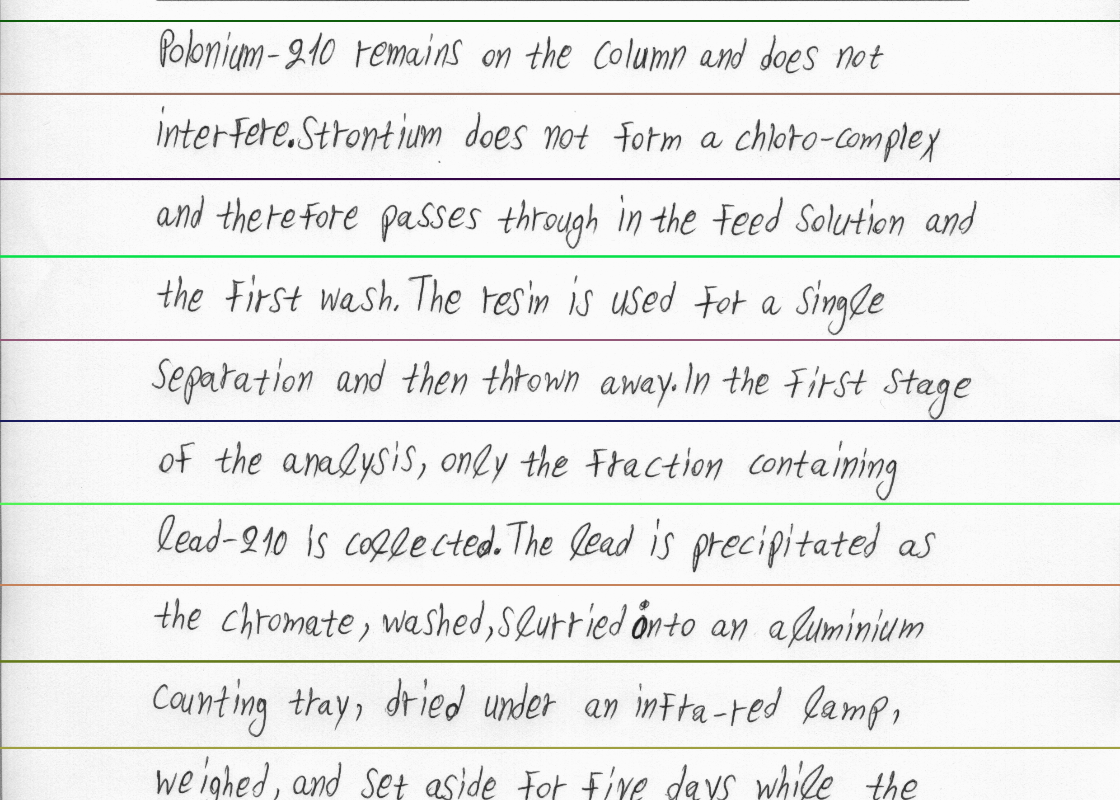 Polonium-210 remains on the column and does not
interfere. Strontium does not form a chloro-complex
and therefore passes through in the feed solution and
the first wash. The resin is used for a single
separation and then thrown away. In the first stage
of the analysis, only the fraction containing
lead-210 is collected. The lead is precipitated as
the chromate, washed, slurried onto an aluminium
counting tray, dried under an infra-red lamp,
weighed, and set aside for five days while the